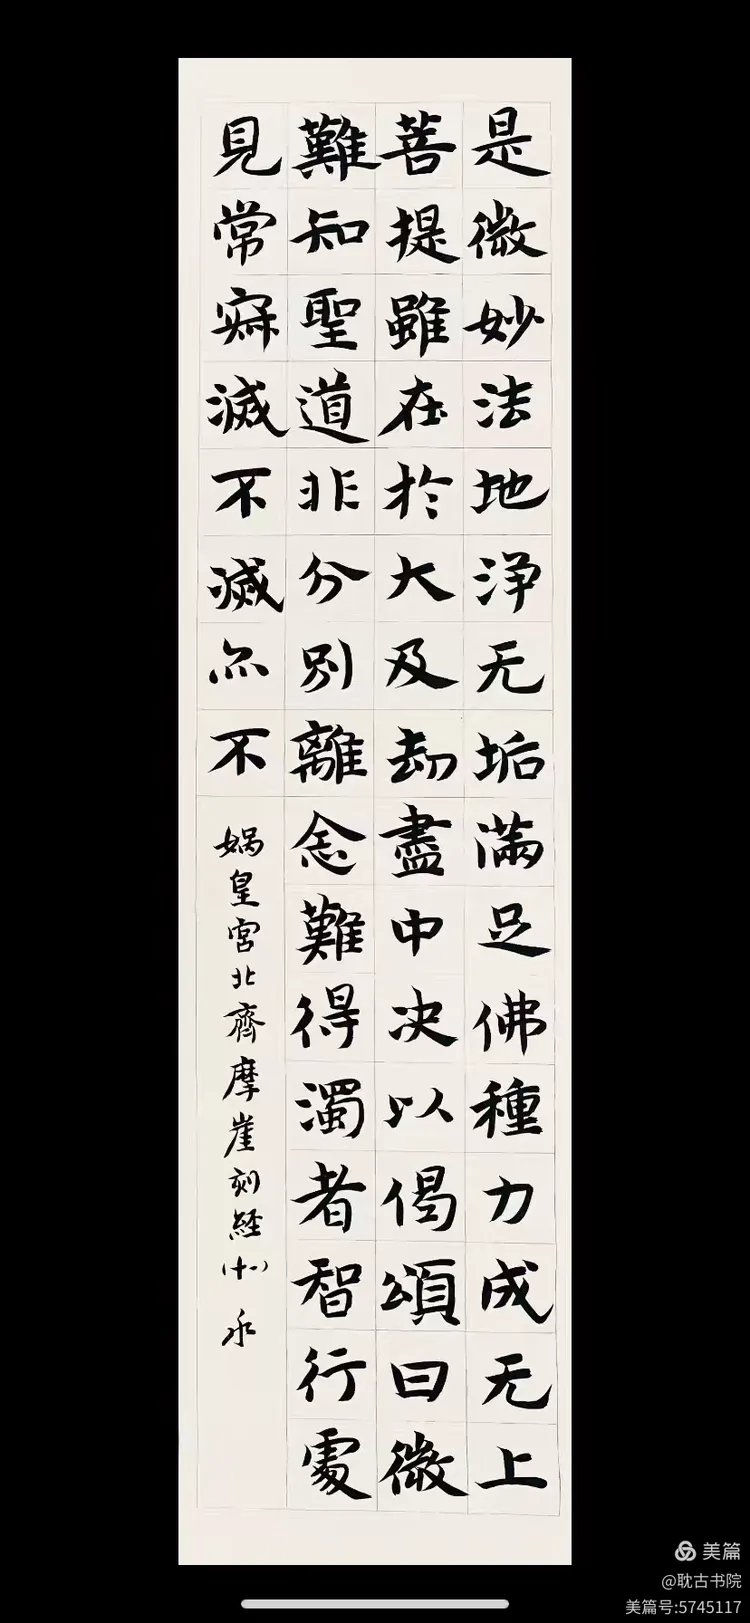 是微妙法地淨无垢满足佛種力成无上
菩提雖在於大及劫盡中决以偈頌曰微
難知聖道非分別離念難得濁者智行處
見常寂滅不滅亦不
媧皇宮北齊摩崖刻經(十八) 永
美篇
@耽古书院
美篇号:5745117